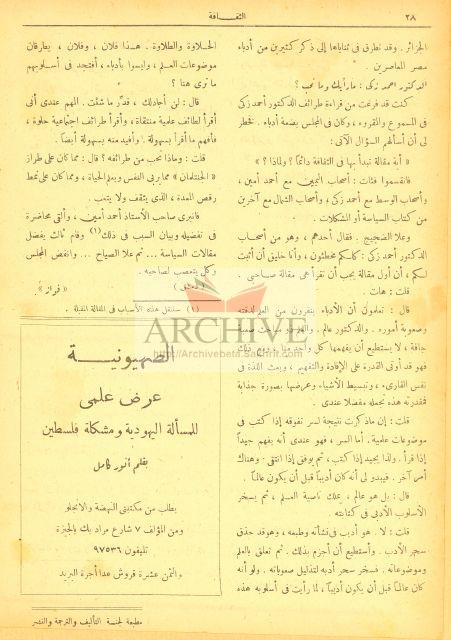 ٢٨
الثقافة
الجزائر . وقد تطرق في ثناياها إلى ذكر كثيرين من أدباء
مصر المعاصرين .
الدكتور احمد زكى : ما رأيك وما تحب ؟
كنت قد فرغت من قراءة طرائف الدكتور أحمد زكى
في المسموع والمقروء ، وكان في المجلس بضعة أدباء . فخطر
لى أن أسألهم السؤال الآتى :
« أية مقالة تبدأ بها في الثقافة دائماً ؟ ولماذا ؟ »
فانقسموا فئات : أصحاب اليمين مع أحمد أمين ،
وأصحاب الوسط مع أحمد زكى ، وأصحاب الشمال مع آخرين
من كتاب السياسة أو المشكلات .
وعلا الضجيج . فقال أحدهم ، وهو من أصحاب
الدكتور أحمد زكى : كلكم مخطئون ، وأنا خليق أن أثبت
لكم ، أن أول مقالة يجب أن تقرأ هى مقالة صاحبى .
قلت : هات .
قال : تعلمون أن الأدباء ينفرون من العلم لدقته
وصعوبة أموره . والدكتور عالم . والعلم
جافة ، لا يستطيع أن يفهمها كل واحد منا . ومع ذلك
فهو قد أوتى القدرة على الإفادة والتفهيم ، وبعث اللذة في
نفس القارىء ، وتبسيط الأشياء وعرضها بصورة جذابة
فمقدرته هذه تجعله مفضلا عندى .
قلت : إن ما ذكرت نتيجة لسر تفوقه إذا كتب في
موضوعات علمية . أما السر ، فهو عندى أنه يفهم جيداً
إذا قرأ . ولذا يجيد إذا كتب ، ثم يوفق إذا انتقى . وهناك
أمر آخر . فيبدو لى أنه كان أديباً قبل أن يكون عالماً .
قال : بل هو عالم ، يملك ناصية العلم ، ثم يسخر
الأسلوب الأدبى في كتابته .
قلت : لا . هو أديب في نشأته وطبعه ، وهو قد حذق
سحر الأدب . وأستطيع أن أجزم بذلك . ثم تعلق بالعلم
وموضوعاته . فسخر سحر أدبه لتذليل صعوباته . ولو أنه
كان عالماً قبل أن يكون أديباً ، لما رأيت في أسلوبه هذه
الحلاوة والطلاوة . هذا فلان ، وفلان ، يطرقان
موضوعات العلم ، وليسوا بأدباء ، أفتجد في أسلوبهم
ما ترى هنا ؟
قال : لن أجادلك ، قدّر ما شئت . المهم عندى أنى
أقرأ لطائف علمية منتقاة ، وأقرأ طرائف اجتماعية حلوة ،
فأفهم ما أقرأ بسهولة . وأفيد منه بسهولة أيضاً .
قلت : وماذا تحب من طرائفه ؟ قال : مما كان على طراز
« الجنتلمان » مما يربى النفس ويعلم الحياة ، ومما كان على نمط
رقص المعدة ، الذى يثقف ولا يتعب .
فانبرى صاحب الأستاذ أحمد أمين ، وألقى محاضرة
في تفضيله وبيان السبب في ذلك (١) وقام ثالث يفضل
مقالات السياسة ... ثم علا الصياح ... وانفض المجلس
وكل يتعصب لصاحبه .
( دمشق )
« فراز »
(١) ستنقل هذه الأسباب في المقالة المقبلة .
ARCHIVE
http://Archivebeta.Sakhrit.com
الصهيونية
عرض علمى
للمسألة اليهودية ومشكلة فلسطين
بقلم أنور كامل
يطلب من مكتبتى النهضة والانجلو
ومن المؤلف ٧ شارع مراد بك بالجيزة
تليفون ٩٧٥٣٦
والثمن عشرة قروش عدا أجرة البريد
مطبعة لجنة التأليف والترجمة والنشر